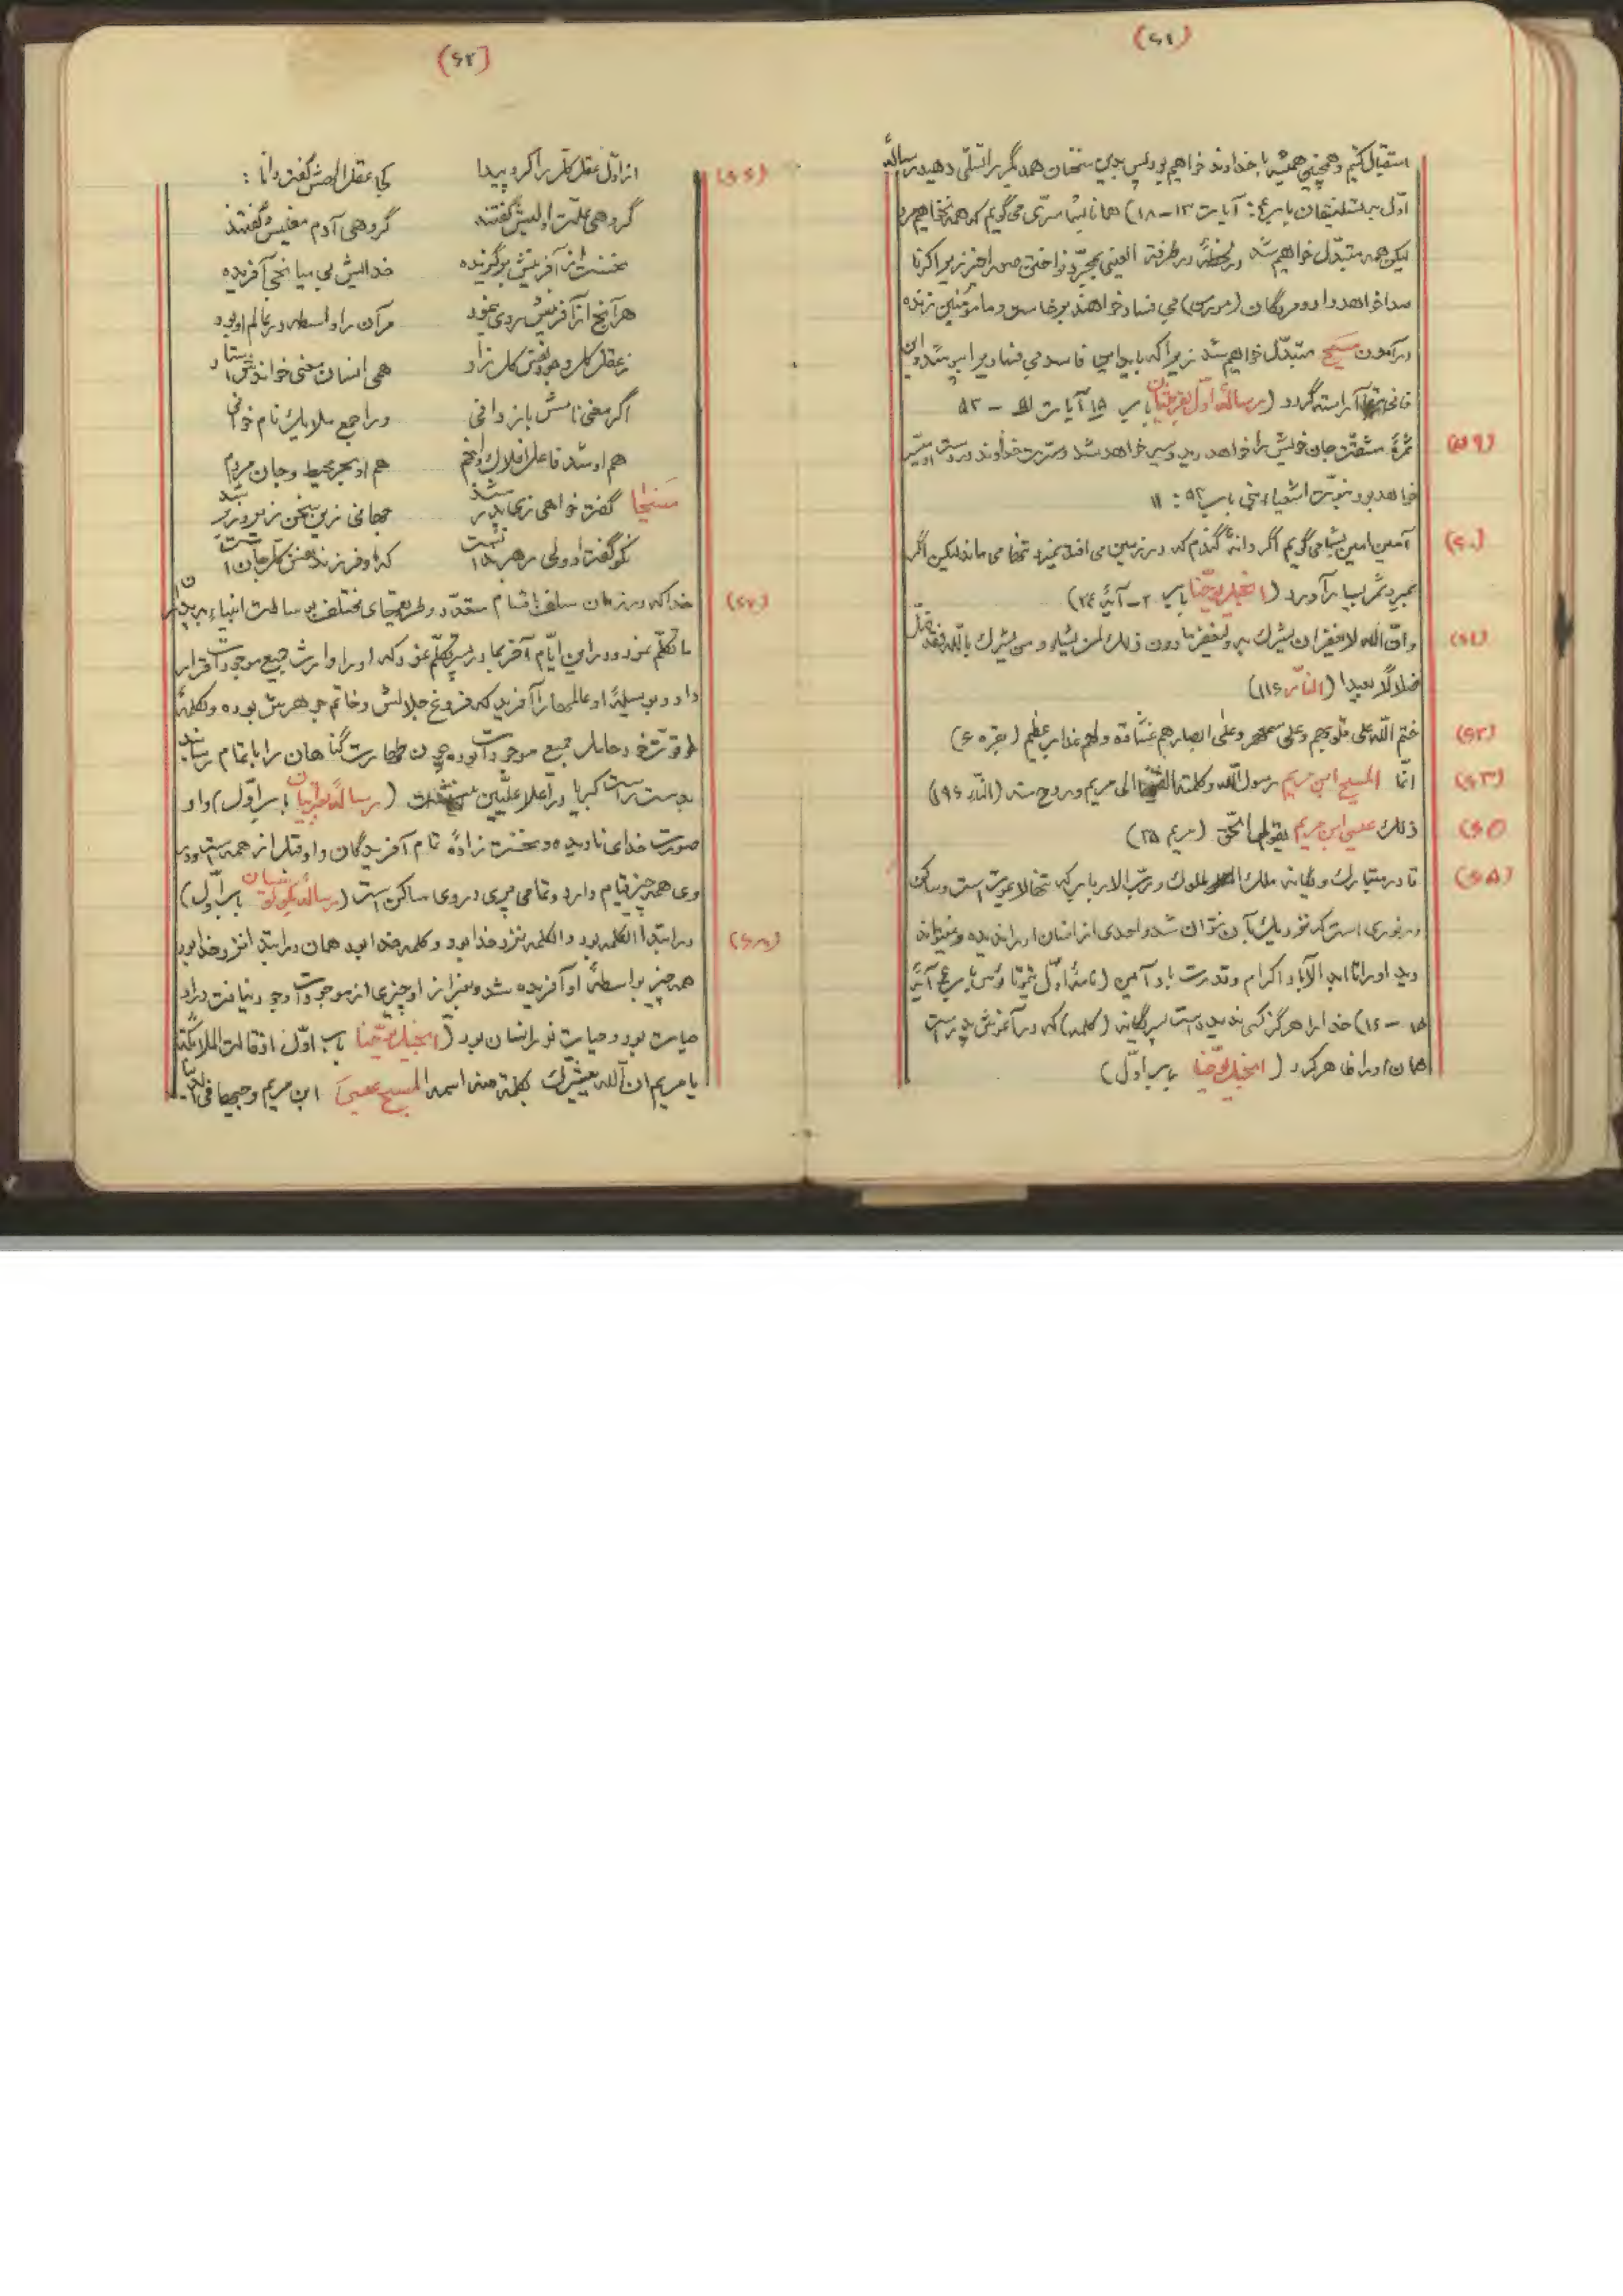 (۶۱)
استقبال کنیم و همچنین همیشه با خداوند خواهیم بود پس بدین سخنان همدیگر را تسلی دهید رسالهٔ
اوّل به تسلینیقیان باب ۴: آیات ۱۳–۱۸) همانا بشما سرّی می گویم که همه نخواهیم مرد
لیکن همه متبدّل خواهیم شد در لحظهٔ در طرفة العینی بمجرّد نواختن صور اخیر زیرا کرنا
صدا خواهد داد و مردگان بی فساد خواهند برخاست و ما مؤمنین زنده
در آمدن مسیح متبدّل خواهیم شد زیرا که باید این فاسد بی فسادی را بپوشد و این
فانی آراسته گردد (رسالهٔ اوّل بقرنتیان باب ۱۵ آیات ۵۱ – ۵۳
(۵۹) ثمرهٔ مشقّت جان خویش را خواهد دید و سیر خواهد شد و مسرت خداوند در دست او میسّر
خواهد بود نبوّت اشعیاء نبی باب ۵۳: ۱۱
(۶۰) آمین آمین بشما می گویم اگر دانهٔ گندم که در زمین می افتد نمیرد تنها می ماند لیکن اگر
بمیرد ثمر بسیار آورد (انجیل یوحّنا باب ۲۰– آیهٔ ۲۴)
(۶۱) وانّ الله لا یغفر ان یشرک به و یغفر ما دون ذلک لمن یشاء و من یشرک بالله فقد ضلّ
ضلالًا بعیدا (النساء ۱۱۶)
(۶۲) ختم اللّه علی قلوبهم وعلی سمعهم وعلی ابصارهم غشاوة ولهم عذاب عظیم (بقره ۶)
(۶۳) انّما المسیح ابن مریم رسول اللّه وکلمته القیها الی مریم وروح منه (النساء ۱۶۹)
ذلک عیسی ابن مریم بقول الحّق (مریم ۳۵)
(۶۵) قادر متبارک و یگانه ملک الملوک و ربّ الارباب که تنها لایموت است و ساکن
در نوری است که نزدیک آن نتوان شد و احدی از انسان او را ندیده و نمیتواند
دید او را تا ابد الآباد اکرام و قدرت باد آمین (نامهٔ اوّل تیموتاوس باب ۶ آیهٔ
۱۵ – ۱۶) خدا را هرگز کسی ندیده است پسر یگانه (کلمه) که در آغوش پدر است
همان او را ظاهر کرد (انجیل یوحّنا باب اوّل)
(۶۲)
(۶۶) از اوّل عقل کل را کرد پیدا کجا عقل الهش گفت دانا :
گروهی علّت اولیش گفتند گروهی آدم معنیش گفتند
نخست از آفرینش برگزیده خدایش بی میانجی آفریده
هر آنچ از آفرینش روی بنمود مر آن را واسطه در عالم او بود
ز عقل کل وجود نفس کل زاد همی انسان معنی خواندش استاد
اگر معنی نامش باز دانی ورا جمع ملایک نام خوانی
هم او شد فاعل افلاک و انجم هم او بحر محیط و جان مردم
مسیحا گفت خواهی زی پدر شد جهانی زین سخن زیر و زبر شد
نکو گفت او ولی رهبر نیست که او فرزند نفس کل جان است
(۶۷) خدا که در زمان سلف باقسام متعدّد و طریقهای مختلف بوساطت انبیاء به پدران
ما تکلّم نمود در این ایّام آخر بما در پسر تکلّم نمود که او را وارث جمیع موجودات قرار
داد و بوسیلهٔ او عالمها را آفرید که فروغ جلالش و خاتم جوهرش بوده و بکلمهٔ
قوّت خود حامل جمیع موجودات بوده چون طهارت گناهان را باتمام رسانید
بدست راست کبریا در اعلا علّیین بنشست (رسالهٔ عبرانیان باب اوّل) و او
صورت خدای نادیده و نخست زادهٔ تمام آفریدگان و او قبل از همه است و در
وی همه چیز قیام دارد و تمامی پری در وی ساکن است (رسالهٔ بکولوسیان باب اوّل)
(۶۸) در ابتدا الکلمه بود و الکلمه نزد خدا بود و کلمه خدا بود همان در ابتدا نزد خدا بود
همه چیز بواسطهٔ او آفریده شد و بغیر از او چیزی از موجودات وجود نیافت در او
حیات بود و حیات نور انسان بود (انجیل یوحّنا باب اوّل) اذ قالت الملائکة
یا مریم انّ الله یبشّرک بکلمة منه اسمه المسیح عیسیَ ابن مریم وجیها فی الدنیا